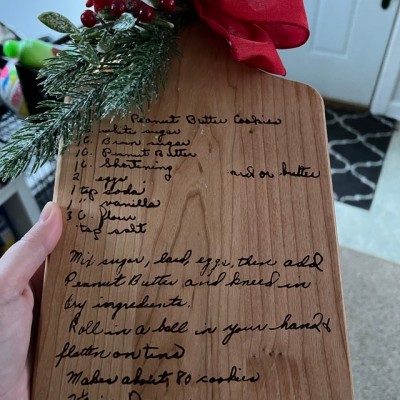 Peanut Butter Cookies
1 C. white sugar
1 C. Brown sugar
1 C. Peanut Butter
1 C. Shortening and or butter
2 eggs
1 tsp soda
1 " vanilla
3 C. flour
tsp salt
Mix sugar, lard, eggs, then add
Peanut Butter and kneed in
dry ingredients.
Roll in a ball in your hand &
flatten on tins
Makes about 80 cookies